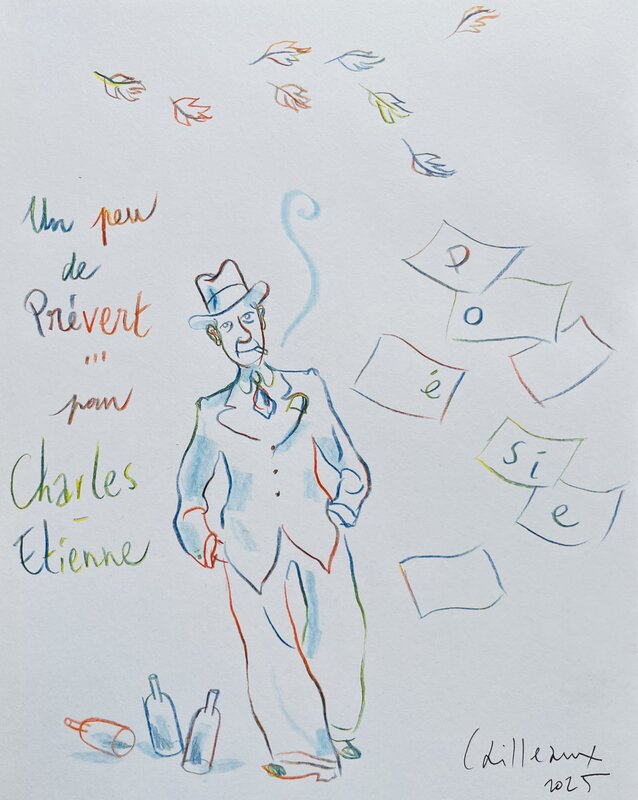 Un peu
de
Prévert
...
pour
Charles
-
Etienne
P
o
é
si
e
Cailleaux
2025